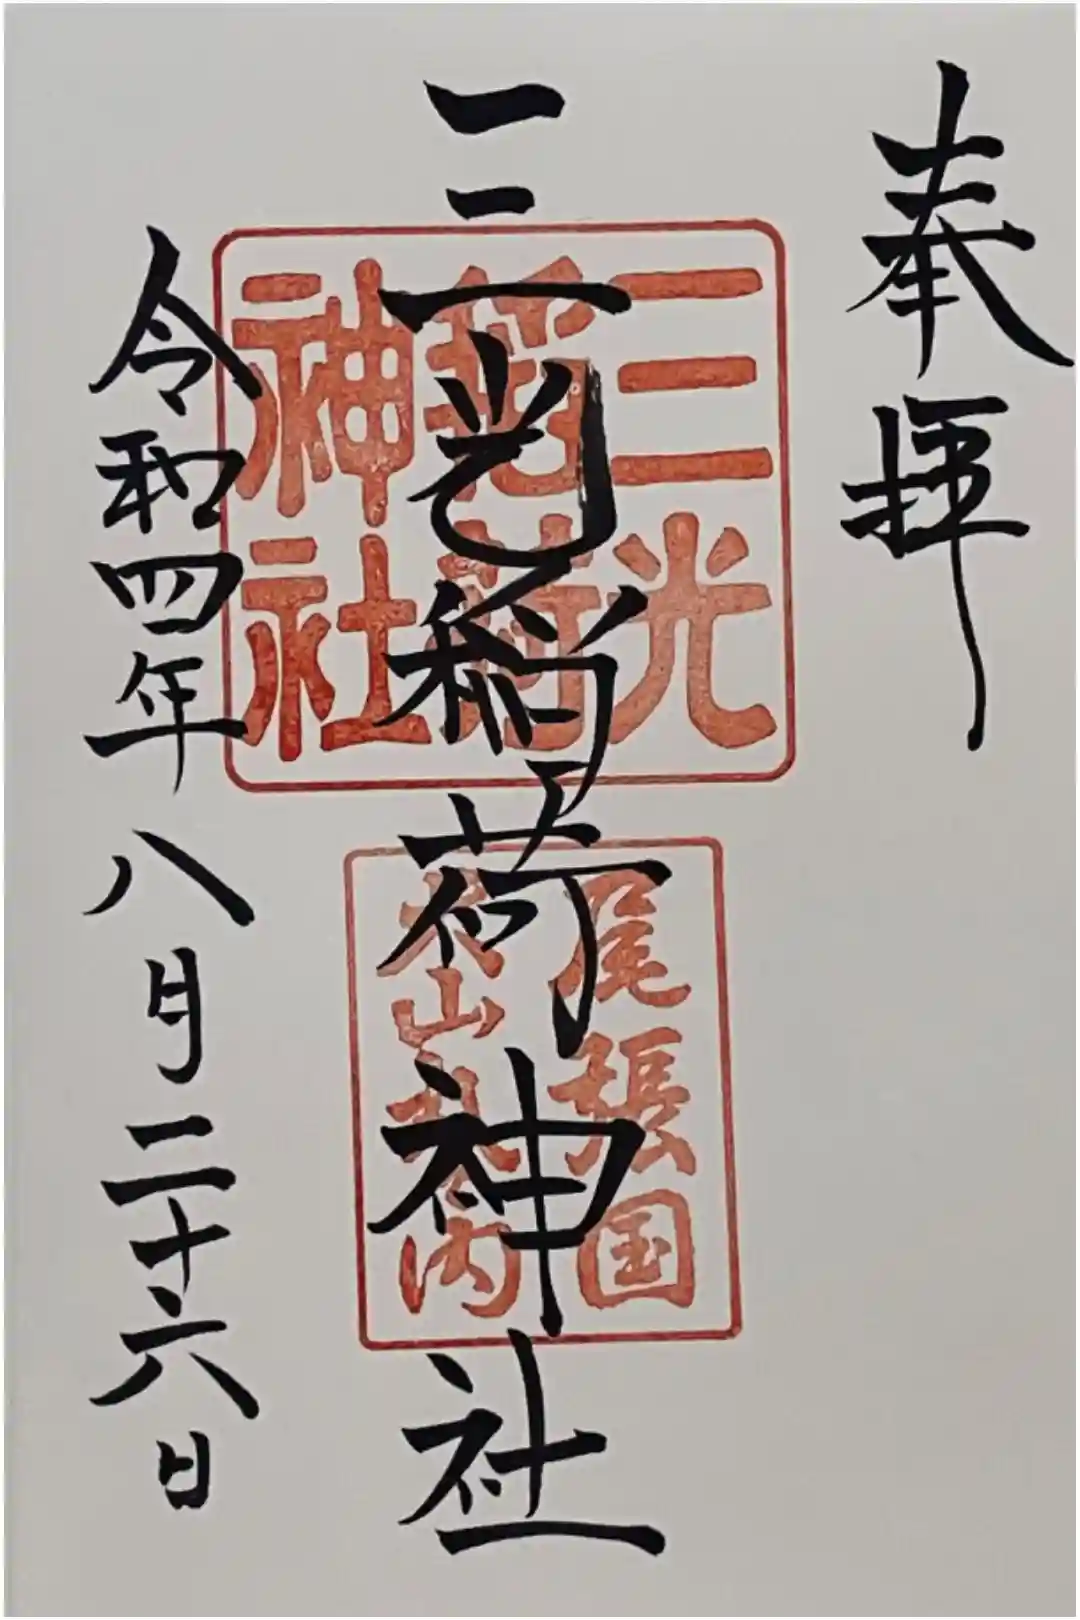 奉拝
三光稲荷神社
令和四年八月二十六日
三光
稲荷
神社
尾張国
犬山丸の内